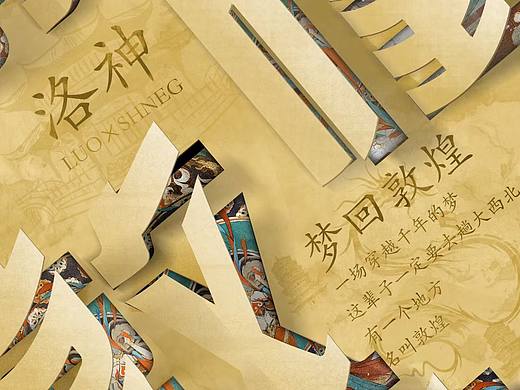 洛神
LUO×SHNEG
梦回敦煌
一场穿越千年的梦
这辈子一定要去趟大西北
有一个地方
名叫敦煌